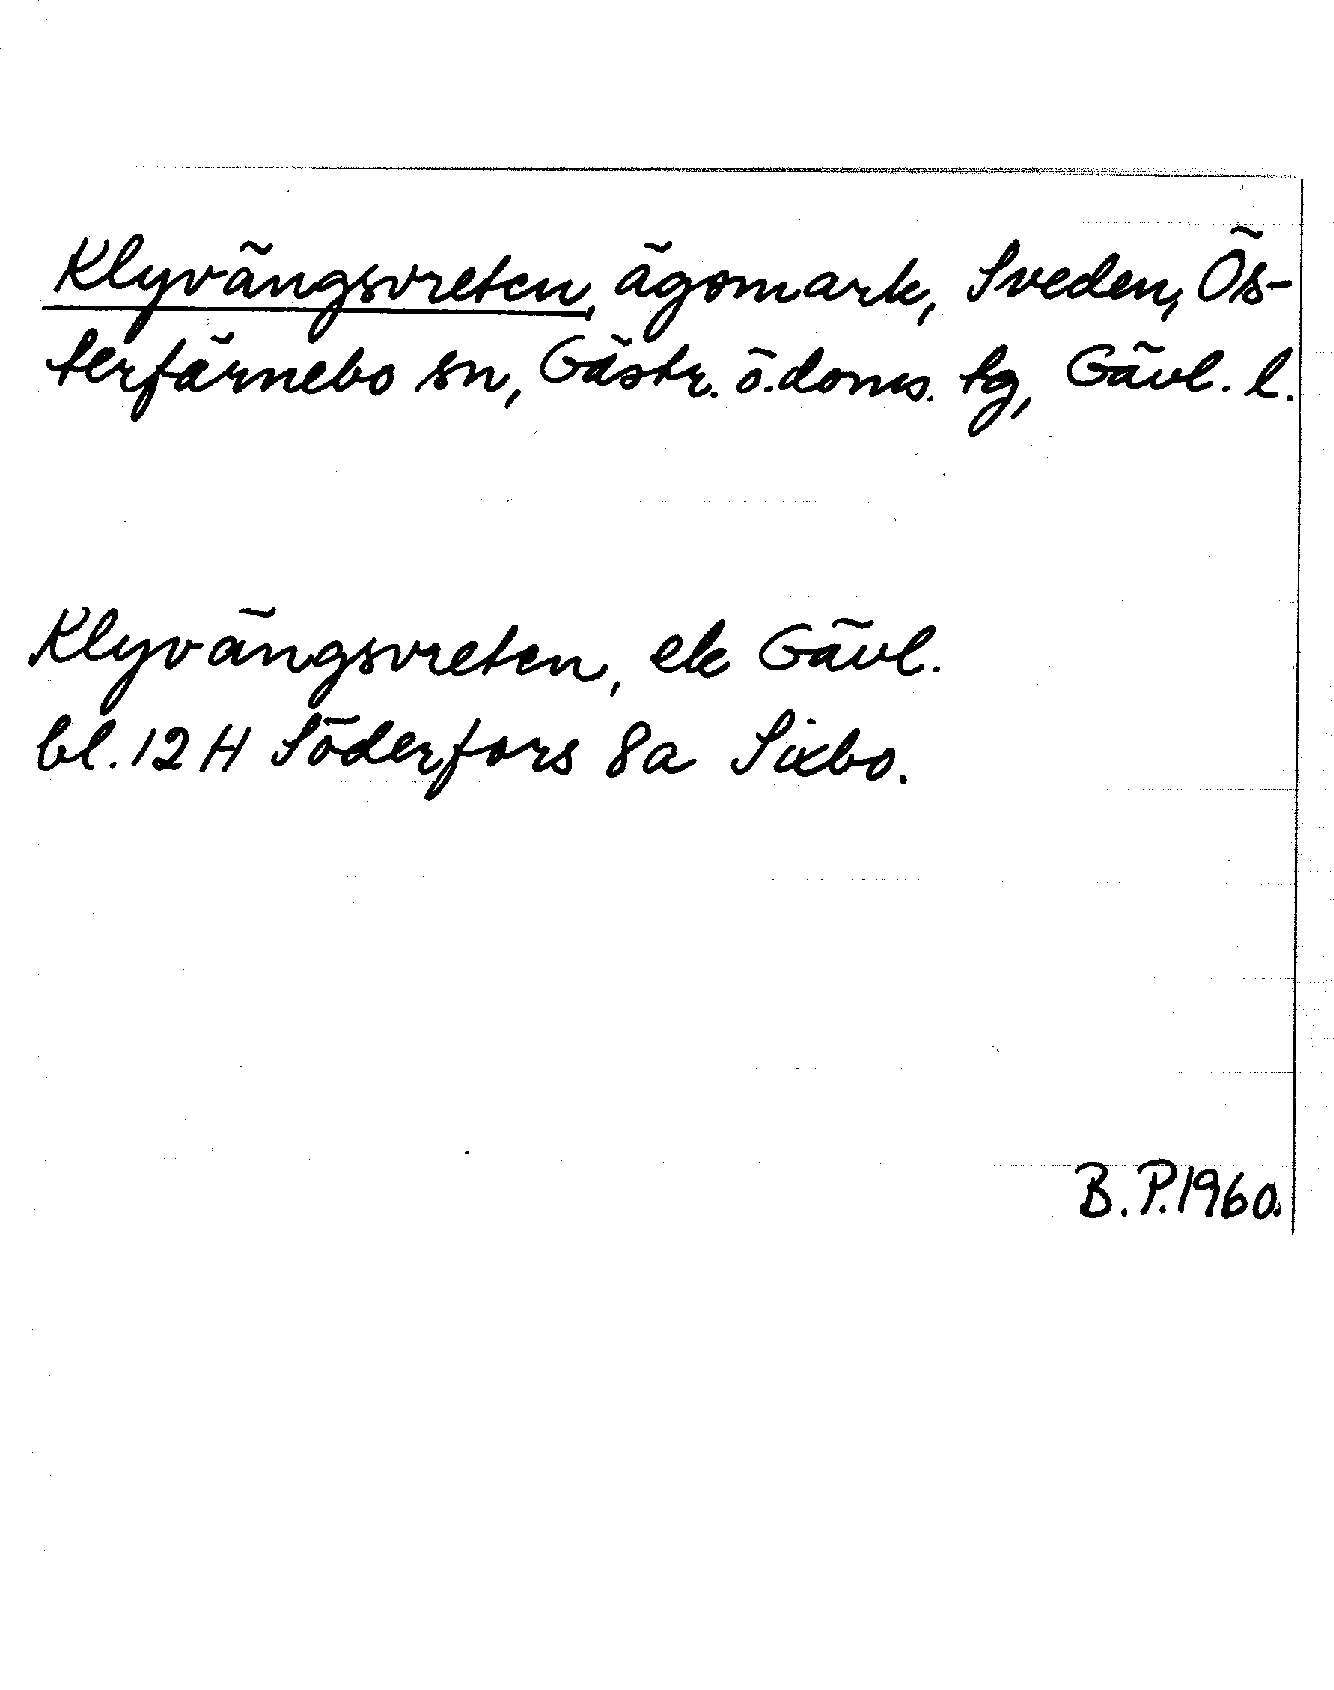 Klyvängsvreten, ägomark, Sveden, Ös-
terfärnebo sn, Gästr. ö. doms. tg, Gävl. l.
Klyvängsvreten, ek Gävl.
bl. 12 H Söderfors 8a Sixbo.
B. P. 1960.